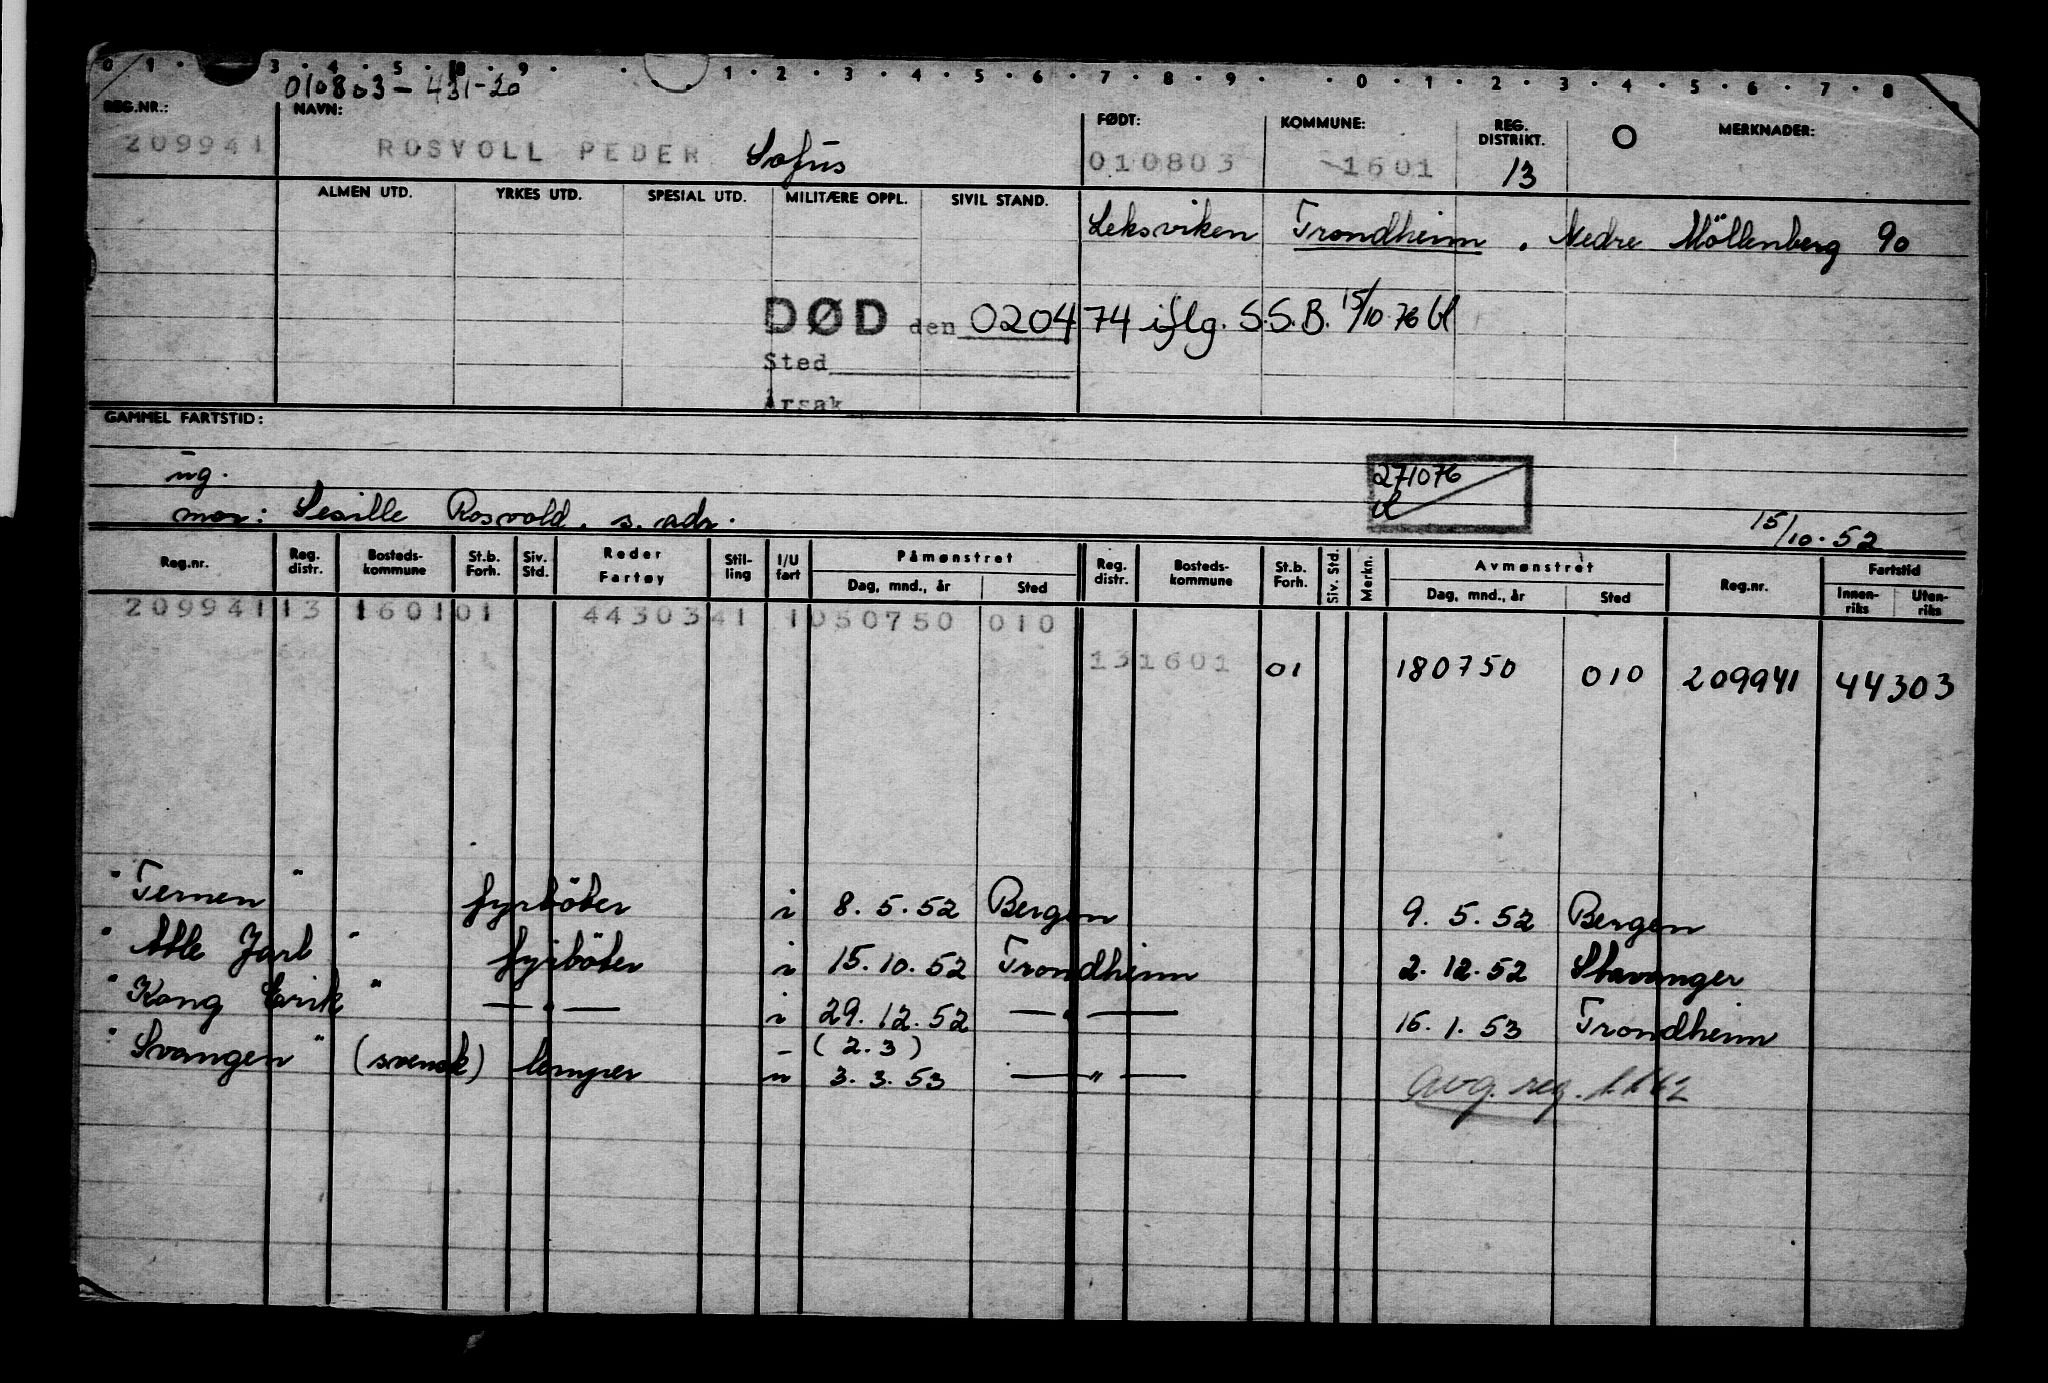 0 1 . 3 . 4 . 5 . 8 . 9 . . 1 . 2 . 3 . 4 . 5 . 6 . 7 . 8 . 9 . . 0 . 1 . 2 . 3 . 4 . 5 . 6 . 7 . 8
010803-431-20
REG.NR.: NAVN: FØDT: KOMMUNE: REG. DISTRIKT. O MERKNADER:
209941 ROSVOLL PEDER Sofus 010803 -1601 13
ALMEN UTD. YRKES UTD. SPESIAL UTD. MILITÆRE OPPL. SIVIL STAND.
Leksviken Trondheim . Nedre Möllenberg 90
DØD den 020474 iflg. S.S.B. 15/10.76
Sted
Årsak
GAMMEL FARTSTID:
ug. 271076
mor: Sesille Rosvold. s. adr.
15/10.52
Reg.nr. Reg. distr. Bosteds-kommune St.b. Forh. Siv. Std. Reder Fartøy Stil-ling I/U fart Påmønstret Dag, mnd., år Sted Reg. distr. Bosteds-kommune St.b. Forh. Siv. Std. Merkn. Avmønstret Dag, mnd., år Sted Reg.nr. Fartstid Innen-riks Uten-riks
209941 13 1601 01 44303 41 1 050750 010
13 1601 01 180750 010 209941 44303
"Ternen" fyrböter i 8.5.52 Bergen 9.5.52 Bergen
"Atle Jarl" fyrböter i 15.10.52 Trondheim 2.12.52 Stavanger
"Kong Eirik" — " — i 29.12.52 — " — 16.1.53 Trondheim
- (2.3)
"Svangen" (svensk) lemper u 3.3.53 — " —
Avg. reg. 1.1.62